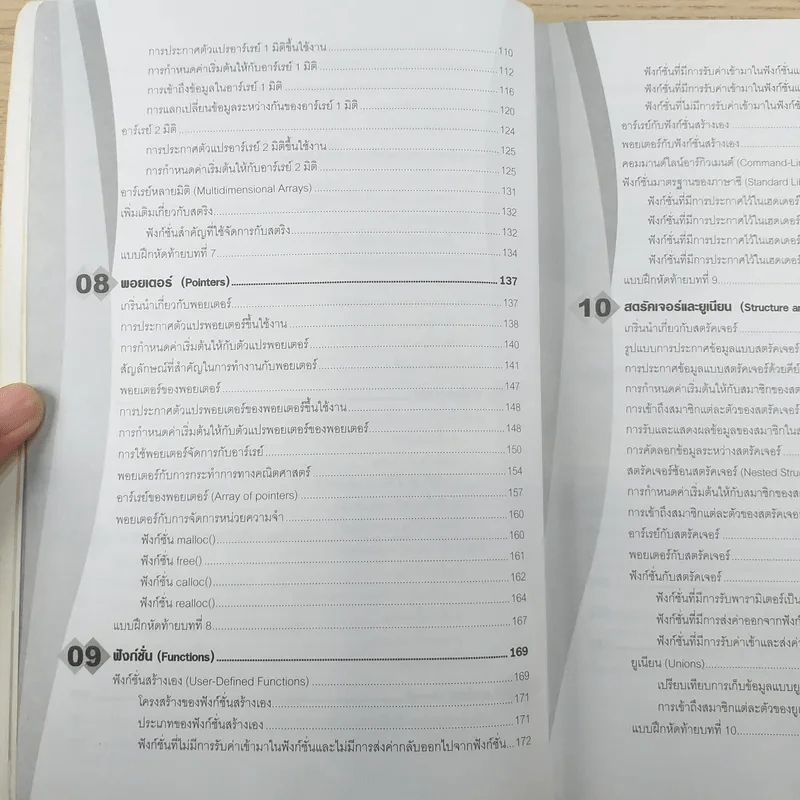 การประกาศตัวแปรอาร์เรย์ 1 มิติขึ้นใช้งาน 110
การกำหนดค่าเริ่มต้นให้กับอาร์เรย์ 1 มิติ 112
การเข้าถึงข้อมูลในอาร์เรย์ 1 มิติ 116
การแลกเปลี่ยนข้อมูลระหว่างกันของอาร์เรย์ 1 มิติ 120
อาร์เรย์ 2 มิติ 124
การประกาศตัวแปรอาร์เรย์ 2 มิติขึ้นใช้งาน 125
การกำหนดค่าเริ่มต้นให้กับอาร์เรย์ 2 มิติ 125
อาร์เรย์หลายมิติ (Multidimensional Arrays) 131
เพิ่มเติมเกี่ยวกับสตริง 132
ฟังก์ชั่นสำคัญที่ใช้จัดการกับสตริง 132
แบบฝึกหัดท้ายบทที่ 7 134
08 พอยเตอร์ (Pointers) 137
เกริ่นนำเกี่ยวกับพอยเตอร์ 137
การประกาศตัวแปรพอยเตอร์ขึ้นใช้งาน 138
การกำหนดค่าเริ่มต้นให้กับตัวแปรพอยเตอร์ 140
สัญลักษณ์ที่สำคัญในการทำงานกับพอยเตอร์ 141
พอยเตอร์ของพอยเตอร์ 147
การประกาศตัวแปรพอยเตอร์ของพอยเตอร์ขึ้นใช้งาน 148
การกำหนดค่าเริ่มต้นให้กับตัวแปรพอยเตอร์ของพอยเตอร์ 148
การใช้พอยเตอร์จัดการกับอาร์เรย์ 150
พอยเตอร์กับการกระทำการทางคณิตศาสตร์ 154
อาร์เรย์ของพอยเตอร์ (Array of pointers) 157
พอยเตอร์กับการจัดการหน่วยความจำ 160
ฟังก์ชั่น malloc() 160
ฟังก์ชั่น free() 161
ฟังก์ชั่น calloc() 162
ฟังก์ชั่น realloc() 164
แบบฝึกหัดท้ายบทที่ 8 167
09 ฟังก์ชั่น (Functions) 169
ฟังก์ชั่นสร้างเอง (User-Defined Functions) 169
โครงสร้างของฟังก์ชั่นสร้างเอง 171
ประเภทของฟังก์ชั่นสร้างเอง 171
ฟังก์ชั่นที่ไม่มีการรับค่าเข้ามาในฟังก์ชั่นและไม่มีการส่งค่ากลับออกไปจากฟังก์ชั่น...172
ฟังก์ชั่นที่มีการรับค่าเข้ามาในฟังก์ชั่นแ
ฟังก์ชั่นที่มีการรับค่าเข้ามาในฟังก์ชั่นแ
ฟังก์ชั่นที่ไม่มีการรับค่าเข้ามาในฟังก์ชั่น
อาร์เรย์กับฟังก์ชั่นสร้างเอง
พอยเตอร์กับฟังก์ชั่นสร้างเอง
คอมมานด์ไลน์อาร์กิวเมนต์ (Command-Lin
ฟังก์ชั่นมาตรฐานของภาษาซี (Standard Lib
ฟังก์ชั่นที่มีการประกาศไว้ในเฮดเดอร์
ฟังก์ชั่นที่มีการประกาศไว้ในเฮดเดอร์
ฟังก์ชั่นที่มีการประกาศไว้ในเฮดเดอร์
ฟังก์ชั่นที่มีการประกาศไว้ในเฮดเดอร์
แบบฝึกหัดท้ายบทที่ 9
10 สตรัคเจอร์และยูเนียน (Structure an
เกริ่นนำเกี่ยวกับสตรัคเจอร์
รูปแบบการประกาศข้อมูลแบบสตรัคเจอร์
การประกาศข้อมูลแบบสตรัคเจอร์ด้วยคีย์
การกำหนดค่าเริ่มต้นให้กับสมาชิกของสต
การเข้าถึงสมาชิกแต่ละตัวของสตรัคเจอร์
การรับและแสดงผลข้อมูลของสมาชิกในส
การคัดลอกข้อมูลระหว่างสตรัคเจอร์
สตรัคเจอร์ซ้อนสตรัคเจอร์ (Nested Struc
การกำหนดค่าเริ่มต้นให้กับสมาชิกของสต
การเข้าถึงสมาชิกแต่ละตัวของสตรัคเจอ
อาร์เรย์กับสตรัคเจอร์
พอยเตอร์กับสตรัคเจอร์
ฟังก์ชั่นกับสตรัคเจอร์
ฟังก์ชั่นที่มีการรับพารามิเตอร์เป็น
ฟังก์ชั่นที่มีการส่งค่าออกจากฟังก์
ฟังก์ชั่นที่มีการรับค่าเข้าและส่งค่า
ยูเนียน (Unions)
เปรียบเทียบการเก็บข้อมูลแบบยู
การเข้าถึงสมาชิกแต่ละตัวของยูเ
แบบฝึกหัดท้ายบทที่ 10